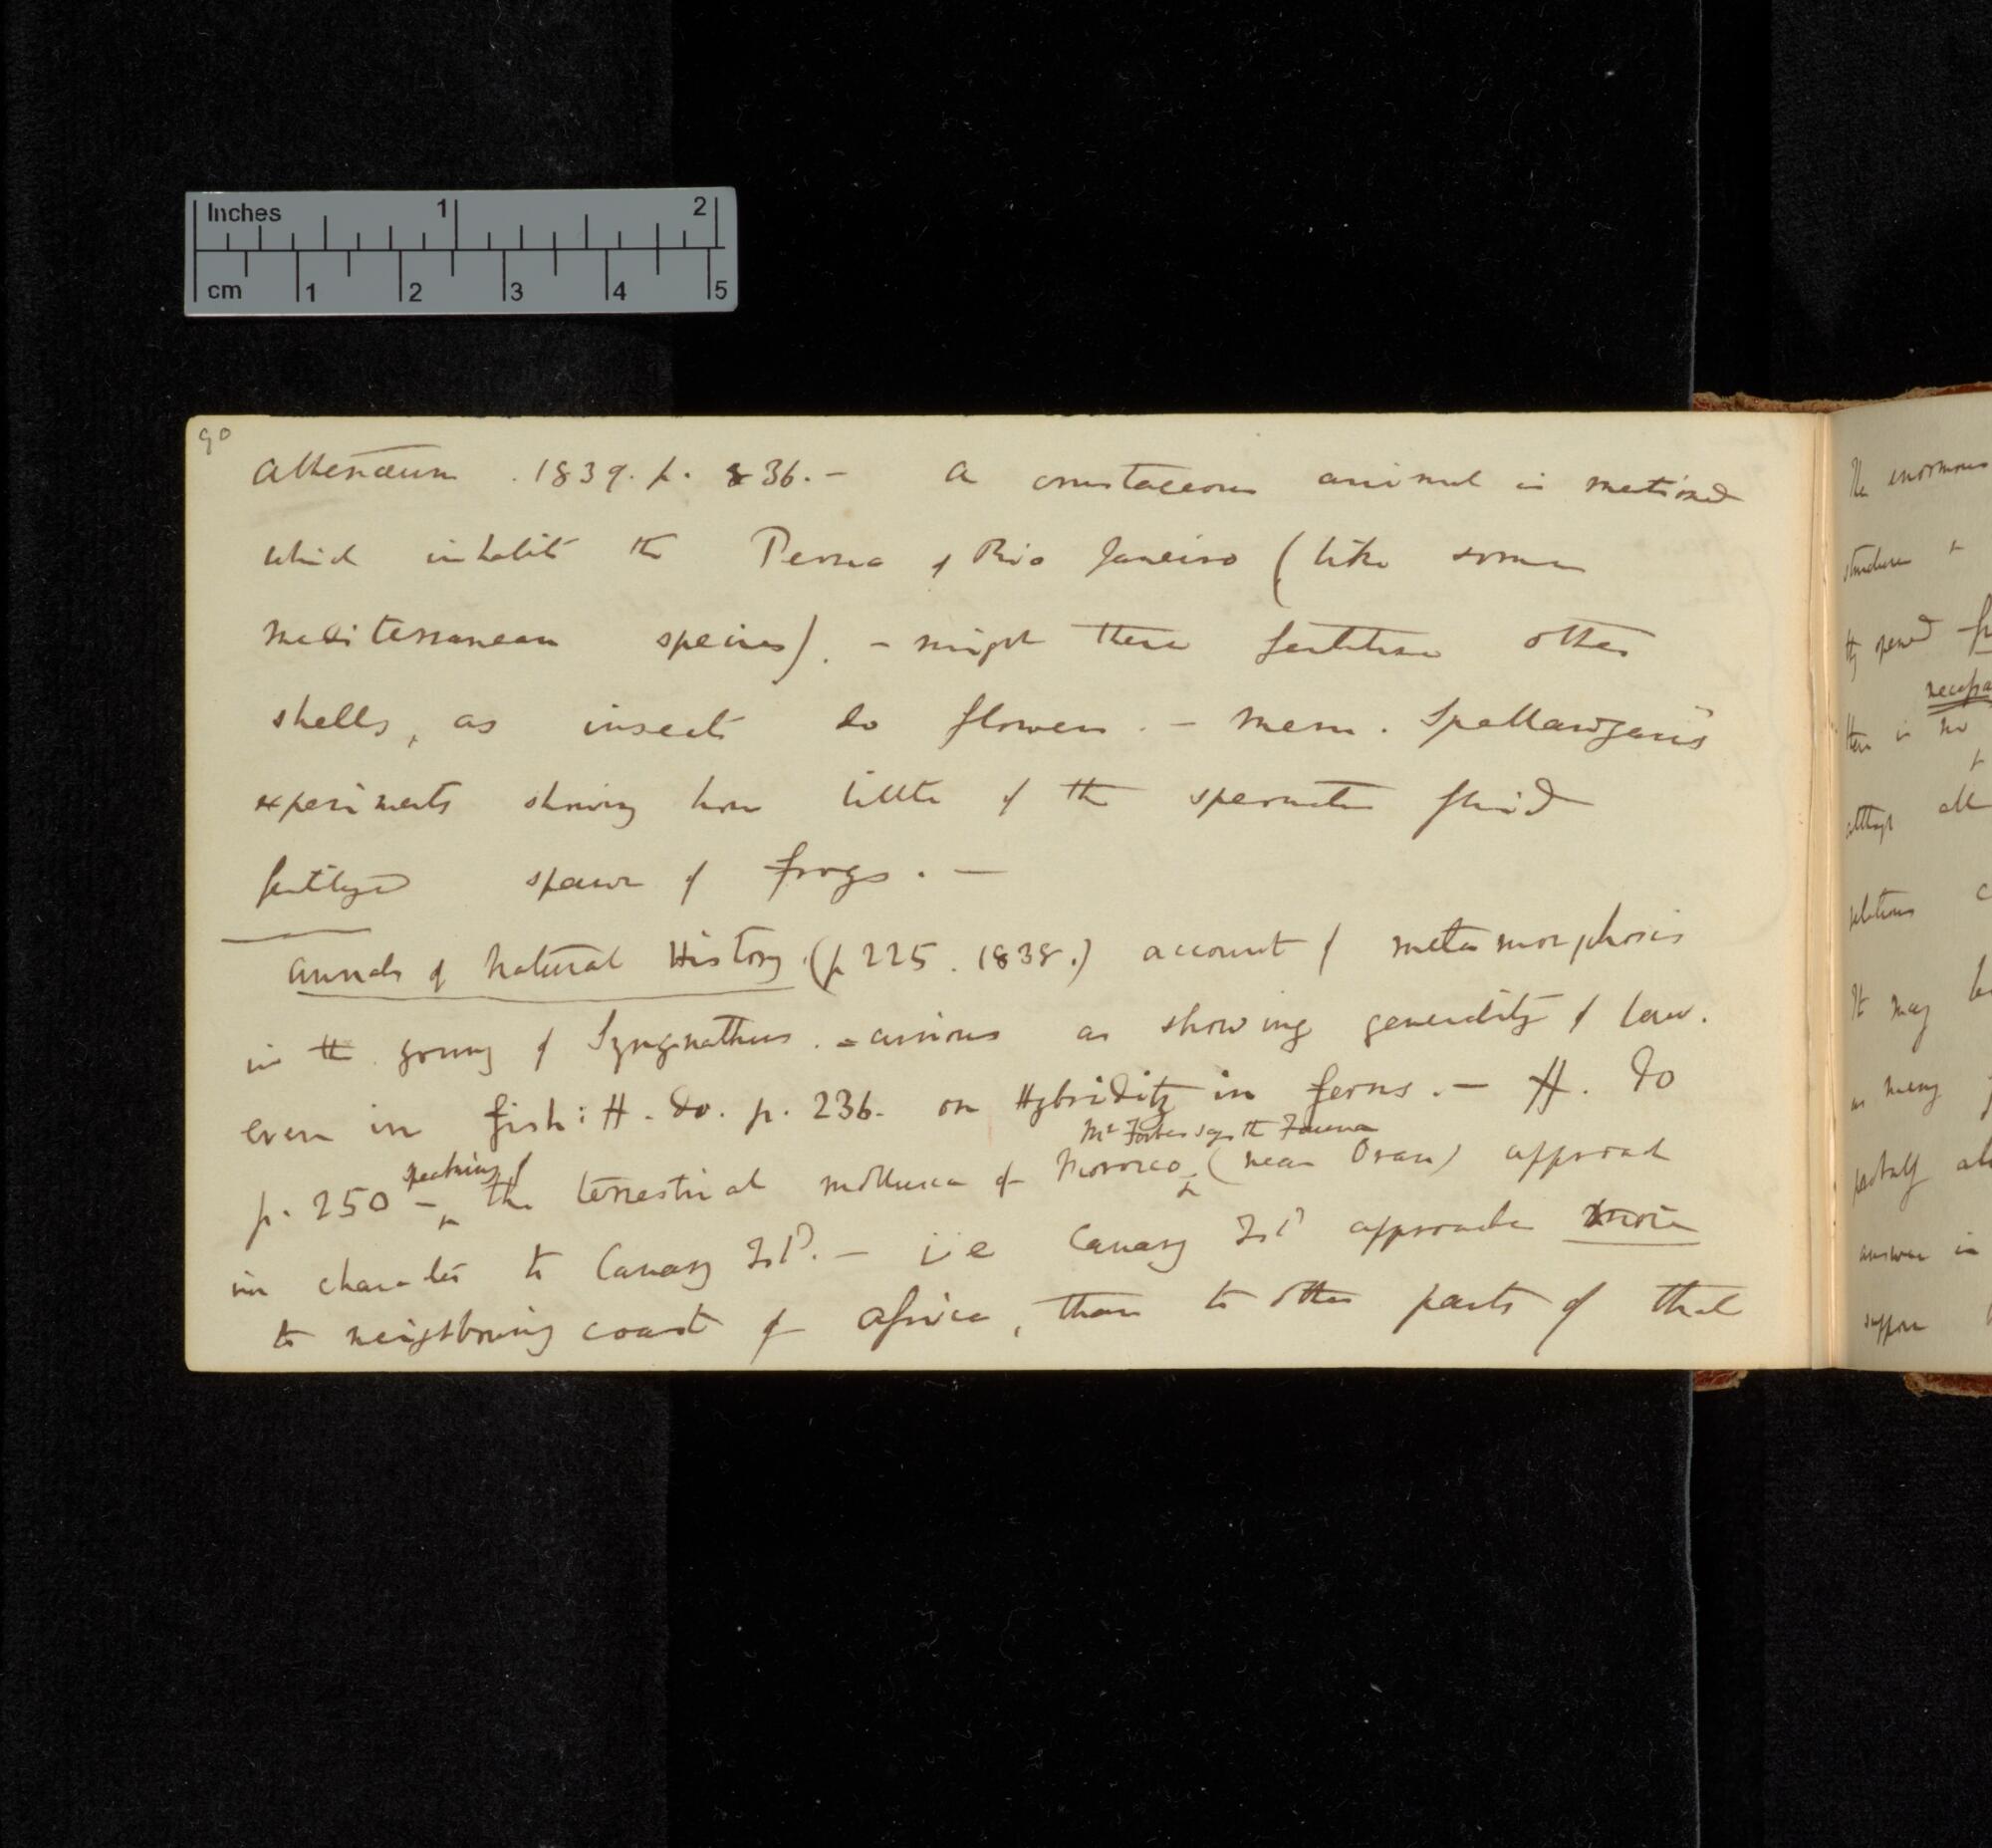 Inches 1 2
cm 1 2 3 4 5
90
Athenæum . 1839. p. 836. — A crustaceous animal is mentioned
which inhabits the Perna of Rio Janeiro (like some
Mediterranean species). — might these fertilise other
shells, as insects do flowers. — Mem. Spallanzani's
experiments showing how little of the spermatic fluid
fertilized spawn of frogs. —
Annals of Natural History. (p 225. 1838.) account of metamorphosis
in the young of Syngnathus. — curious as showing generality of law.
even in fish: H. do. p. 236. on Hybridity in ferns. — H. do
Mr Forbes says the Fauna
p. 250 — speaking of the terrestrial mollusca of Morocco (near Oran) approach
in character to Canary Isd. — i.e Canary Isd approach more
to neighbouring coast of Africa, than to other parts of that
The enormous
structure &
they
there is no
although all
relations
It may be
as many
probably
answer is
suppose